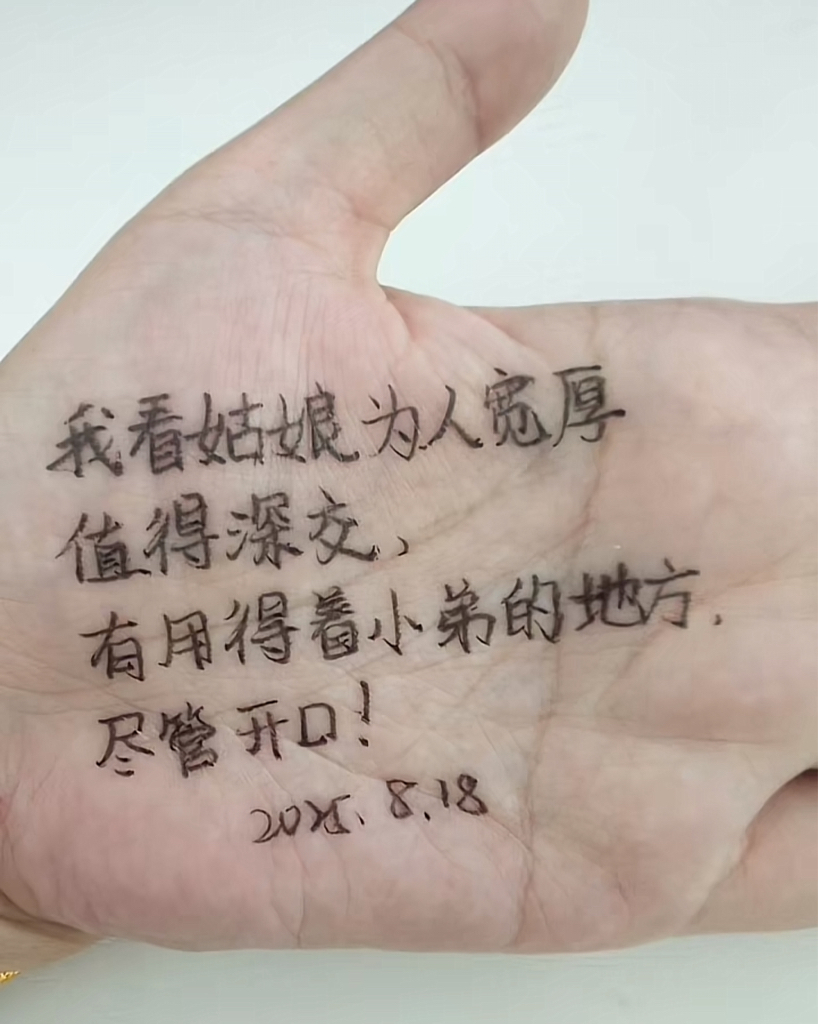 我看姑娘为人宽厚
值得深交，
有用得着小弟的地方.
尽管开口！
2025.8.18